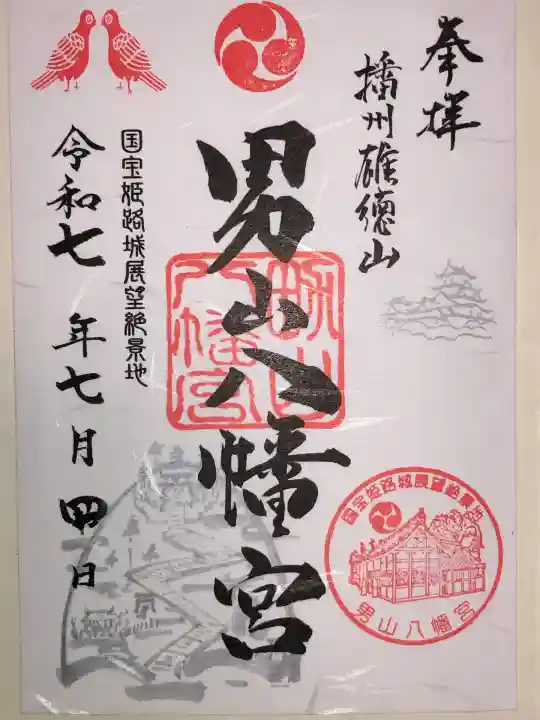 奉拝
播州雄德山
男山八幡宮
国宝姫路城展望絶景地
令和七年七月四日
国宝姫路城展望絶景地
男山八幡宮